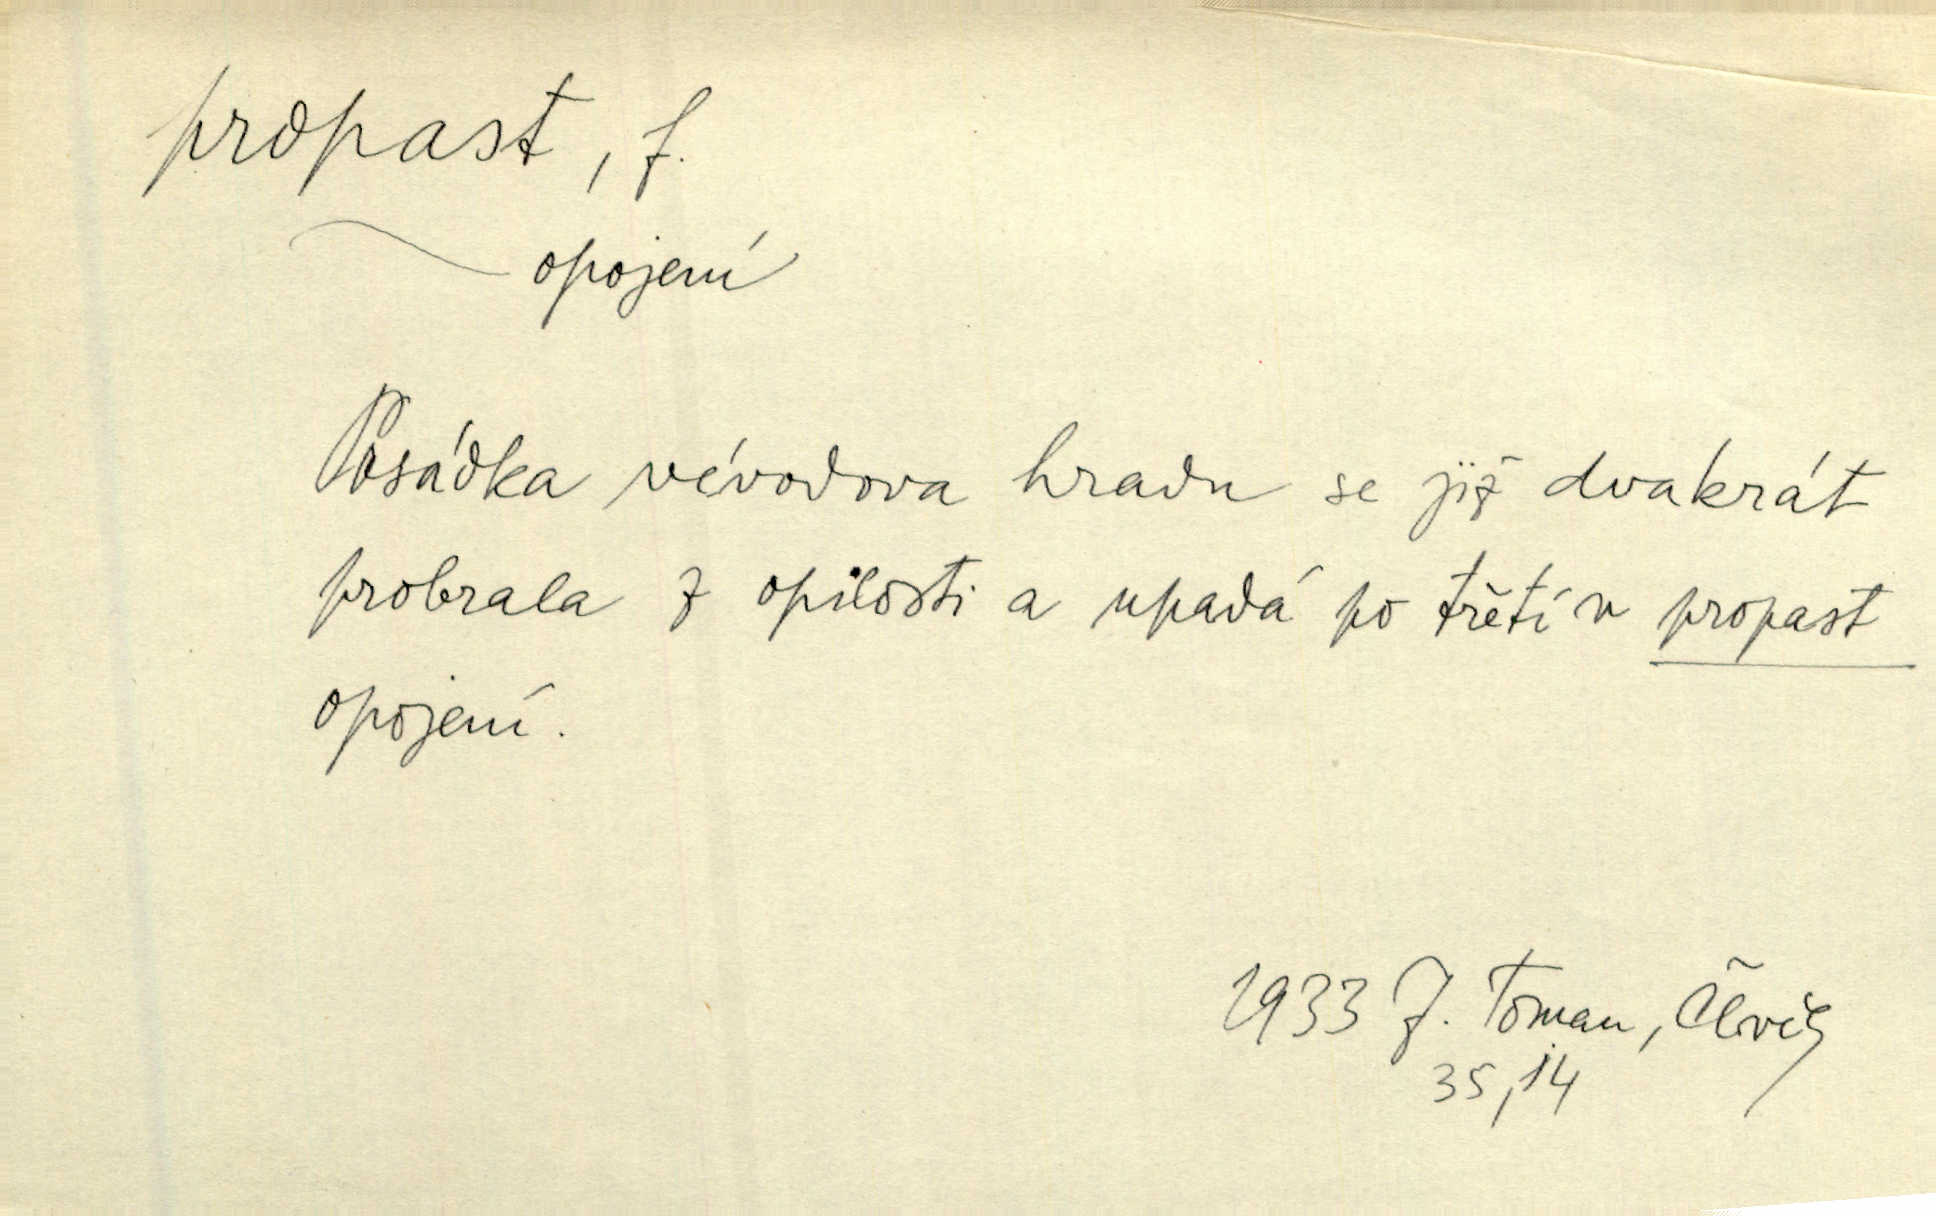 propast, f.
opojení
Posádka vévodova hradu se již dvakrát
probrala z opilosti a upadá po třetí v propast
opojení.
1933 J. Toman, Člověk
35,14